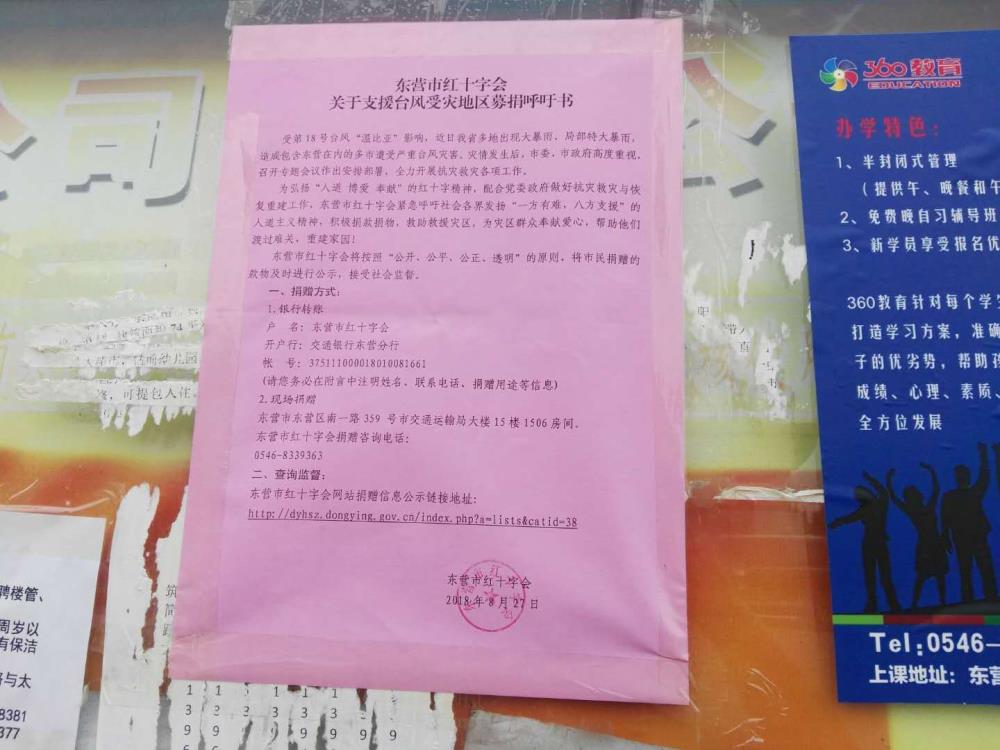 公司
东营市红十字会
关于支援台风受灾地区募捐呼吁书
受第18号台风“温比亚”影响，近日我省多地出现大暴雨，局部特大暴雨，
造成包含东营在内的多市遭受严重台风灾害。灾情发生后，市委、市政府高度重视，
召开专题会议作出安排部署，全力开展抗灾救灾各项工作。
为弘扬“人道 博爱 奉献”的红十字精神，配合党委政府做好抗灾救灾与恢
复重建工作，东营市红十字会紧急呼吁社会各界发扬“一方有难，八方支援”的
人道主义精神，积极捐款捐物，救助救援灾区，为灾区群众奉献爱心，帮助他们
渡过难关，重建家园！
东营市红十字会将按照“公开、公平、公正、透明”的原则，将市民捐赠的
款物及时进行公示，接受社会监督。
一、捐赠方式：
1.银行转账
户 名：东营市红十字会
开户行：交通银行东营分行
帐 号：375111000018010081661
(请您务必在附言中注明姓名、联系电话、捐赠用途等信息)
2.现场捐赠
东营市东营区南一路359号市交通运输局大楼15楼1506房间。
东营市红十字会捐赠咨询电话：
0546-8339363
二、查询监督：
东营市红十字会网站捐赠信息公示链接地址：
http://dyhsz.dongying.gov.cn/index.php?a=lists&catid=38
东营市红十字会
2018年8月27日
360教育
EDUCATION
办学特色：
1、半封闭式管理
（提供午、晚餐和午
2、免费晚自习辅导班
3、新学员享受报名优
360教育针对每个学生
打造学习方案，准确
子的优劣势，帮助孩
成绩、心理、素质、
全方位发展
Tel:0546-
上课地址：东营
聘楼管、
周岁以
有保洁
与太
8381
377
可提包入住